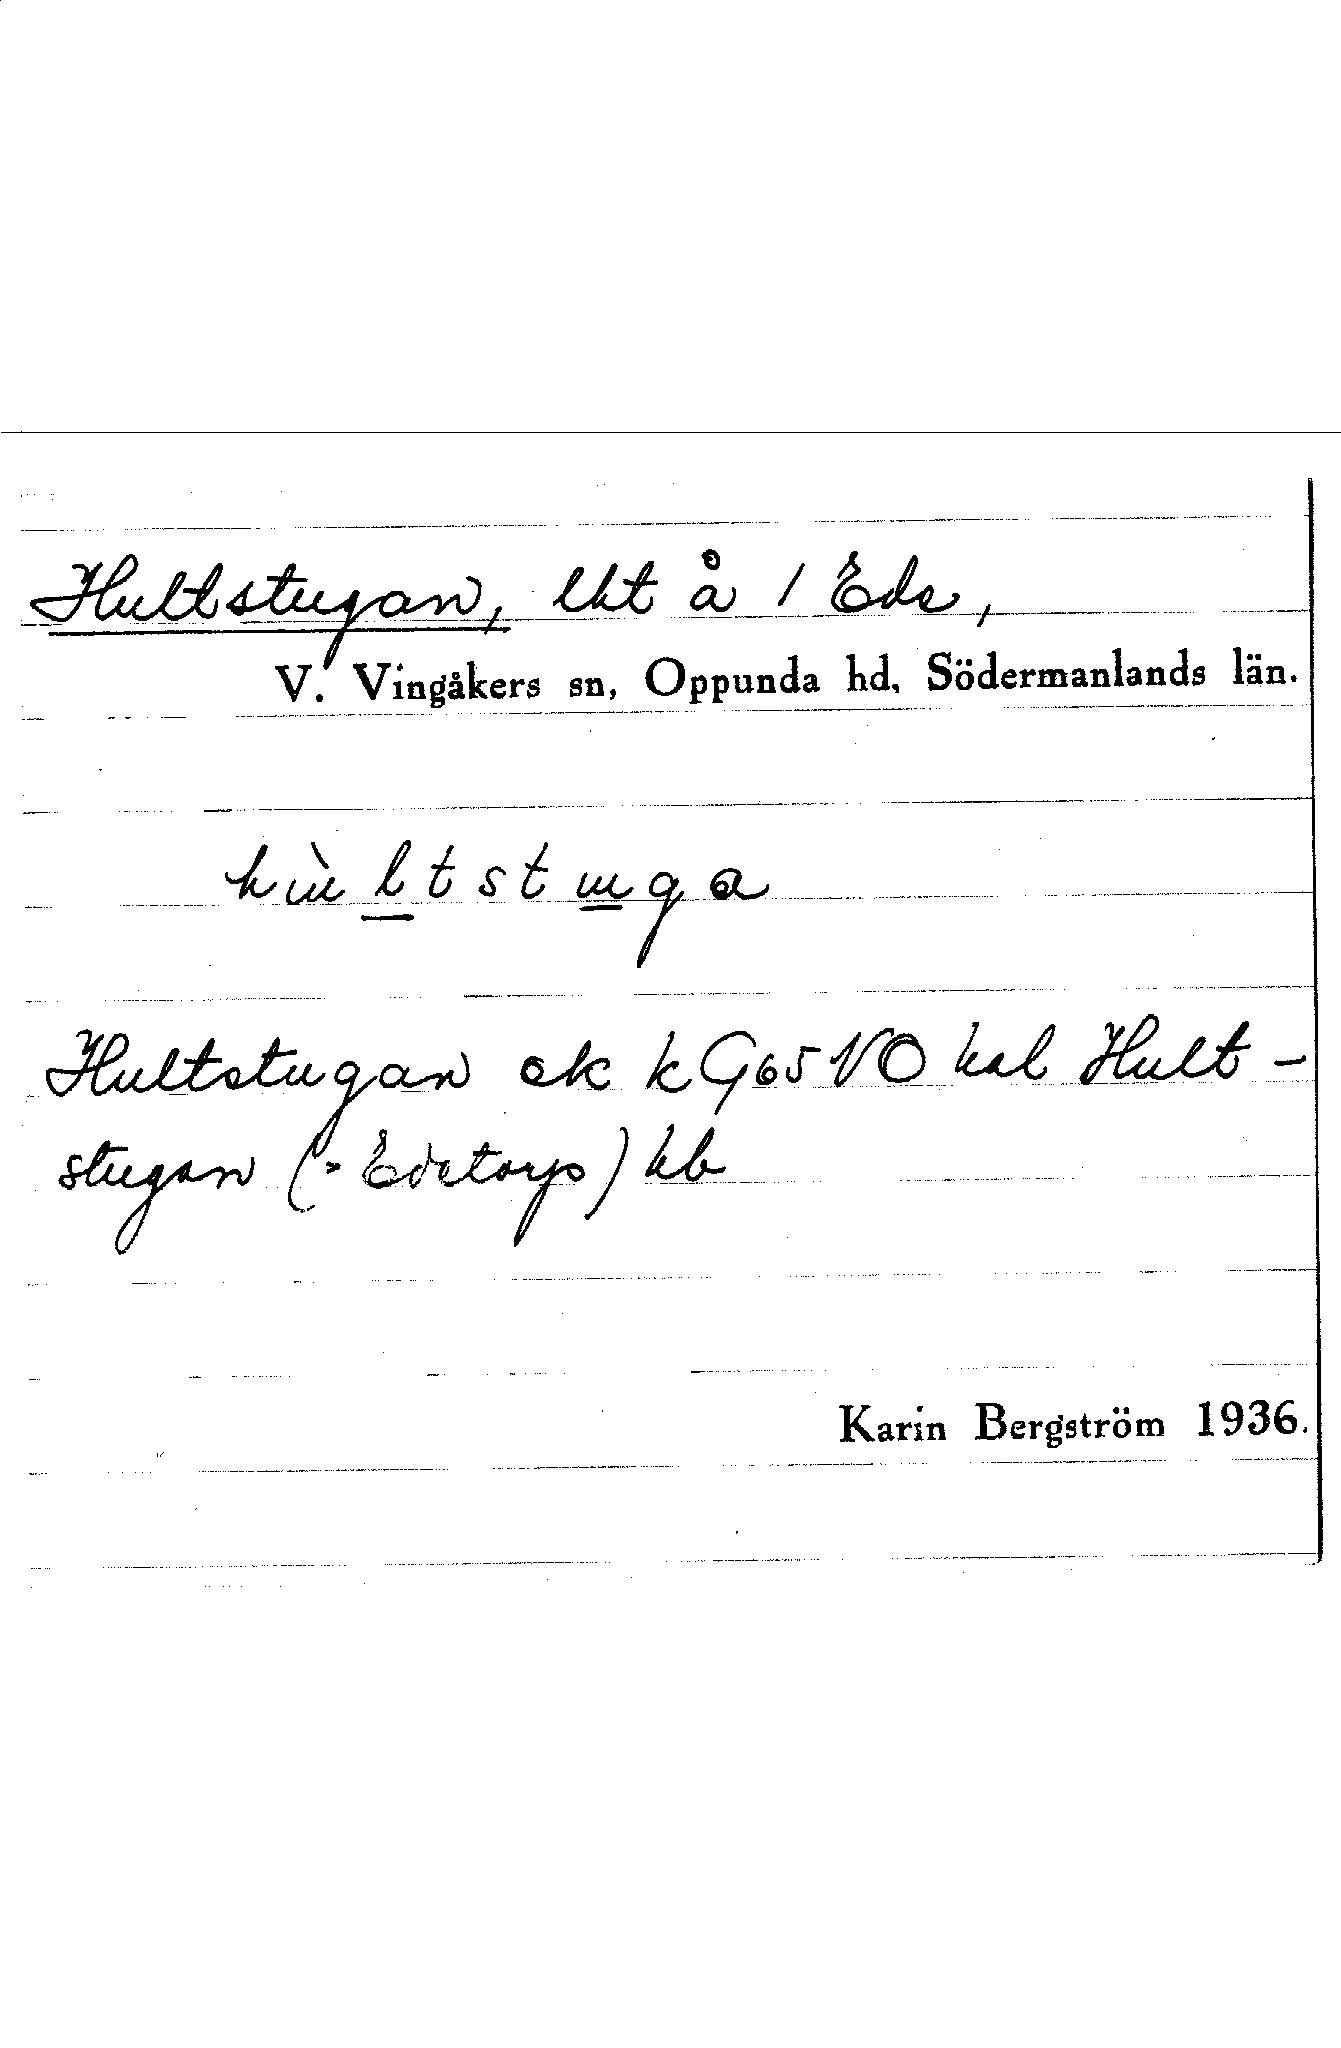 Hultstugan, lht å 1 Eds,
V. Vingåkers sn, Oppunda hd, Södermanlands län.
hùltstuga
Hultstugan ek kG65NO hal Hult-
stugan (= Edstorp) hb
Karin Bergström 1936.